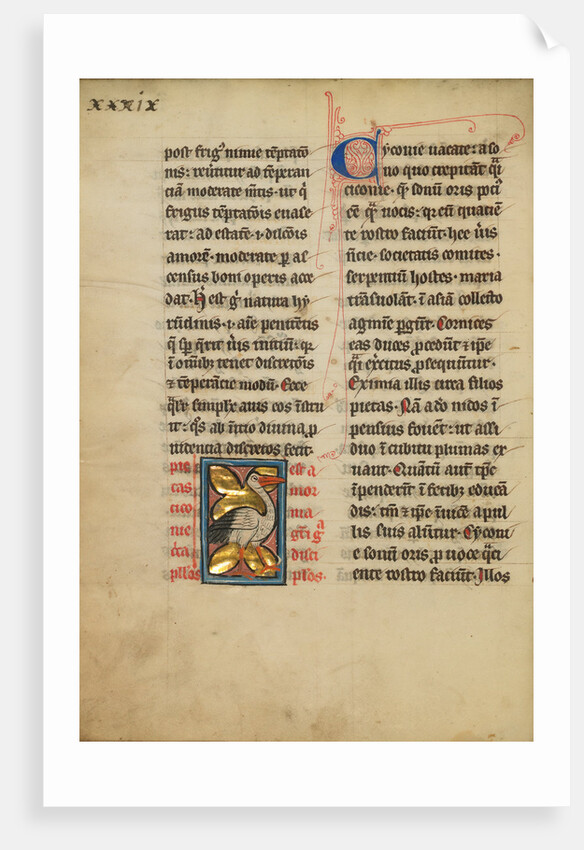 xxxix
post frig᷒ nimie tēptatōnis
nis: reūtitur ad tēperan
ciā moderate mētis· ut q̄
frigus tēptatōis euase
rat: ad estatē· ī dilcōis
amorē· moderate p as
census boni operis acce
dat· H̄ est g̃ natura hy
rūdinis· ī· aīe penitētis
q̄ sp qrit ūis initiū: qr
ī oīb; tenet discretōis
⁊ tēperācie modū· Ecce
simplex auis eos īstru
it: qͦs ab īitio diuina p
uidentia discretos fecit·
pie
tas
cico
nie
ē̄ca
pllōs
est a
mor
ma
gr̄i g̃
disci
plōs·
Cyconie uocate: a so
no quo crepitāt qͣi
ciconie· q̄ sonū oris poci᷒
eē qͣ uocis: qr eū quatiē
te rostro faciūt· hee ūis
nūcie· societatis comites·
serpentiū hostes· maria
trāsuolāt· ī asiā collecto
agmīe pgūt· Cornices
eas duces pcedūt ⁊ ip̄e
qͣi exercitus psequūtur·
Eximia illis circa filios
pietas· Nā adeo nidos ī
pensius fouēt: ut assi
duo īcubitu plumas ex
uant· Quātū aut tp̄e
īpenderīt ī fetib; educā
dis: tm̄ ⁊ ip̄e īuicē a pul
lis suis alūtur· Cyconi
e sonū oris p uoce qͣci
ente rostro faciūt· Illos